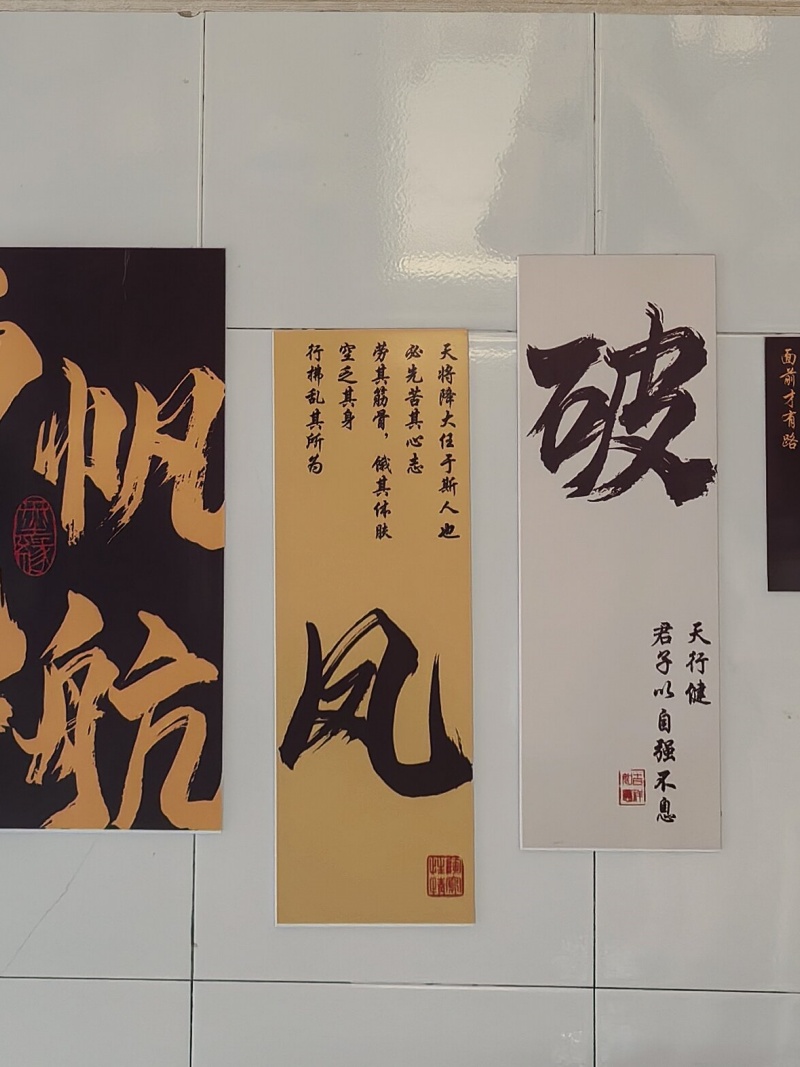 帆
航
天将降大任于斯人也
必先苦其心志
劳其筋骨，饿其体肤
空乏其身
行拂乱其所为
凤
破
天行健
君子以自强不息
吉祥
如意
面前才有路